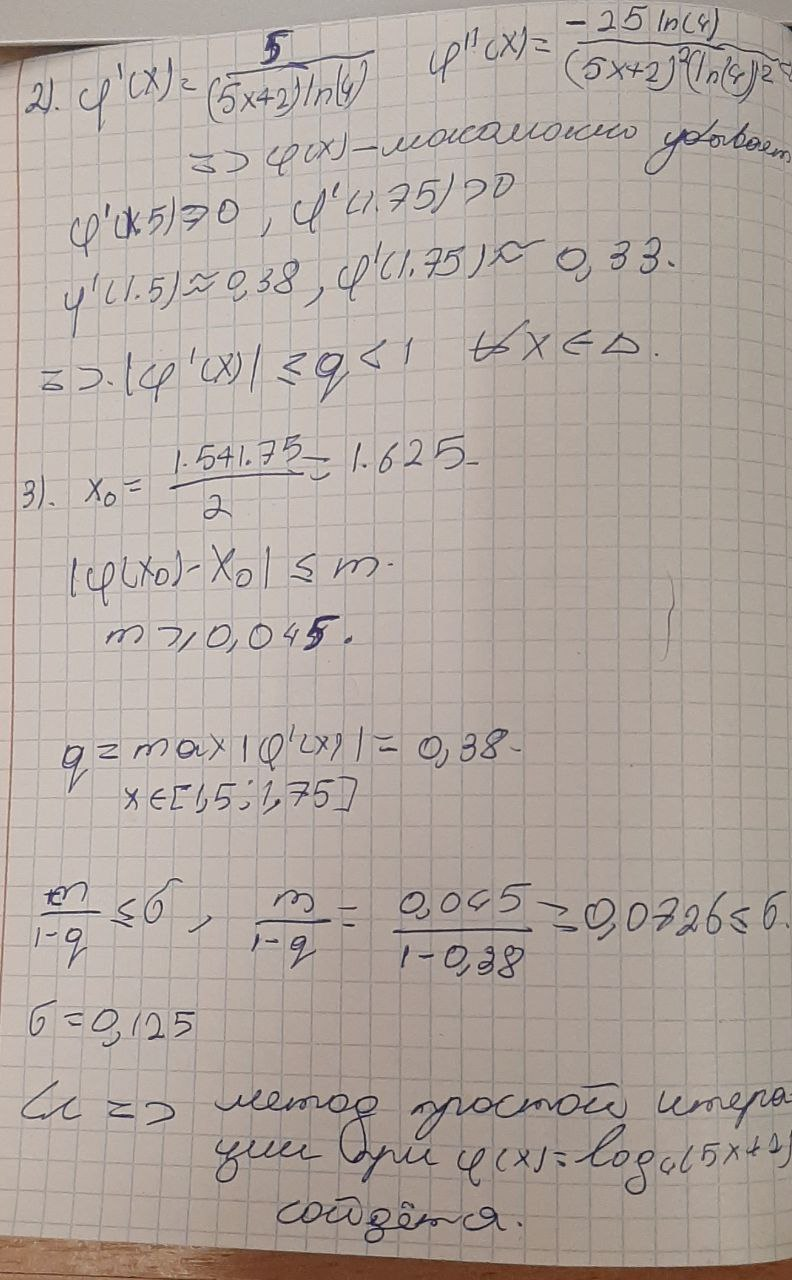 2). φ'(x) = 5/((5x+2)ln(4)) φ''(x) = -25 ln(4)/((5x+2)²(ln(4))²
=> φ'(x) – убывает
φ'(1.5) > 0, φ'(1.75) > 0
φ'(1.5) ≈ 0,38, φ'(1.75) ≈ 0,33.
=> |φ'(x)| ≤ q < 1 ∀x ∈ Δ.
3). x₀ = (1.5+1.75)/2 = 1.625
|φ(x₀) - x₀| ≤ m.
m ≥ 0,045.
q = max|φ'(x)| = 0,38
x ∈ [1,5; 1,75]
m/(1-q) ≤ σ, m/(1-q) = 0,045/(1-0,38) = 0,0726 ≤ σ.
σ = 0,125
=> метод простой итера-
ции при φ(x) = log₄(5x+2)
сойдётся.